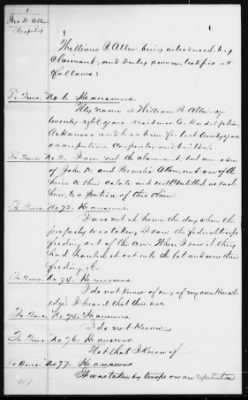 Jno. D. Allen
William B Allen, being introduced by
Claimant, and duly sworn, testifies as
follows:
To Ques. No. 1. He answers.
His name is William B Allen, age
twenty eight years residence Arkadelphia
Arkansas and has been for last twenty years
occupation Carpenter and builder.
To Ques. No. 2. I am not the claimant, but am son
of John D. and Permelia Allen and one of the
heirs to their estate and will that as such
have a portion of this claim
To Ques. No. 73. He answers.
I was not at home the day when the
property was taken, I saw the federal troops
feeding out of the corn. When I saw it they
had hauled it out into the lot and were then
feeding it.
To Ques. No. 74. He answers.
I do not know of any of my own knowl-
edge. I heard that there was
To Ques. No. 75. He answers
I do not know
To Ques. No. 76. He answers
Not that I know of
To Ques. No. 77. He answers
It was taken by troops on an expedition